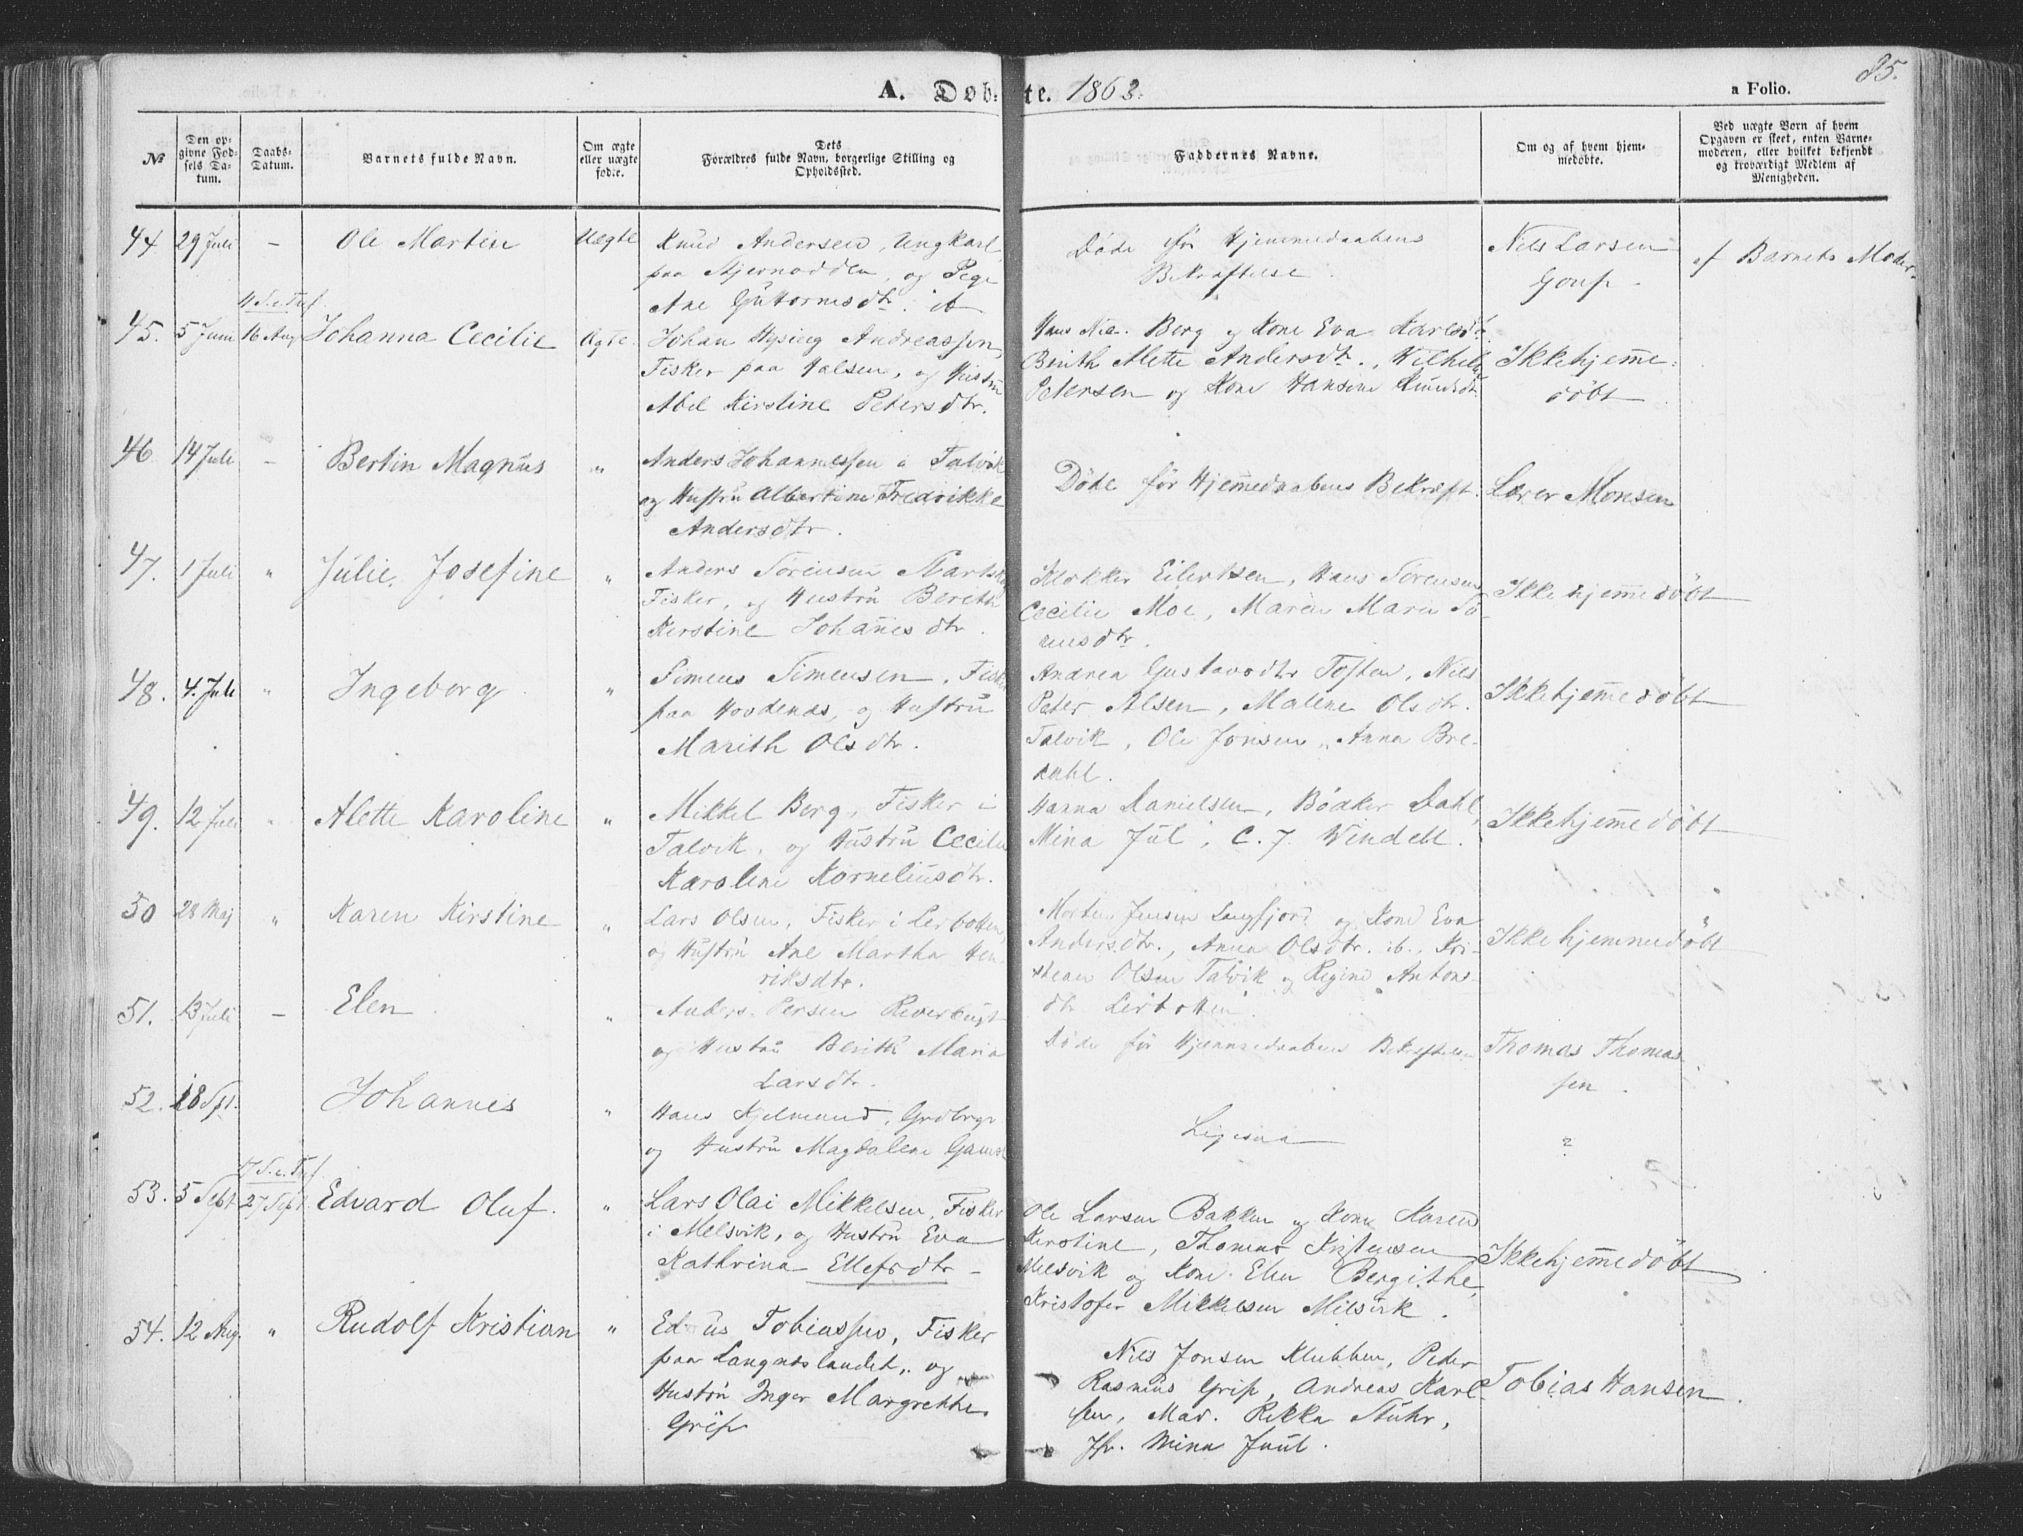 A. Døb-te. 1863.
a Folio.
85.
№
Den op-
givne Fød-
sels Da-
tum.
Daabs-
Datum.
Barnets fulde Navn.
Om ægte
eller uægte
født.
Dets
Forældres fulde Navn, borgerlige Stilling og
Opholdssted.
Faddernes Navne.
Om og af hvem hjem-
medøbte.
Ved uægte Børn af hvem
Opgaven er skeet, enten Barne-
moderen, eller hvilket bekjendt
og troværdigt Medlem af
Menigheden.
44 29 Juli – Ole Martin Uægte
Knud Andersen, Ungkarl
paa Stjernodden, og Pige
Ane Guttormsdtr. ib
Døde før Hjemmedaabens
Bekræftelse.
Nils Larsen
af Barnets Moder
45. 5 Juni 16 Aug Johanna Cecilie Ægte.
Johan Hysing Andreassen,
Fisker paa Halsen, og Hustru
Abel Kirstine Petersdtr.
Hans Nic. Berg og Kone Eva Karlsdtr.
Berith Mette Andersdtr., Wilhelm
Petersen og Kone Hansine Knudsdtr.
Ikkehjemme-
døbt
46 14 Juli – Bertin Magnus "
Anders Johannessen i Talvik
og Hustru Albertine Fredrikke
Andersdtr.
Døde før Hjemmedaabens Bekræft.
Lærer Monsen
47. 1 Juli " Julie Josefine "
Anders Sørensen
Fisker, og Hustru Berith
Kirstine Johannesdtr.
Klokker Eilertsen, Hans Sørensen,
Cecilie Moe, Maren Maria Sø-
rensdtr.
Ikke hjemmedøbt
48. 4. Juli " Ingeborg "
Simens Simensen, Fisker
paa Hovdenæs, og Hustru
Marith Olsdtr.
Andrea Gustavsdtr Toften, Nils
Peter Alsen, Malene Olsdtr.
Talvik, Ole Jonsen, Anna Bre-
dahl.
Ikkehjemmedøbt
49. 12 Juli " Alette Karoline "
Mikkel Berg, Fisker i
Talvik, og Hustru Cecilie
Karoline Korneliusdtr.
Hanna Danielsen, Bødker Dahl,
Mina Jul, C. J. Windell.
Ikkehjemmedøbt
50 28 Maj " Karen Kirstine "
Lars Olsen, Fisker i Lerbotten,
og Hustru Ane Martha Hen-
riksdtr.
Morten Jensen Langfjord og Kone Eva
Andersdtr., Anna Olsdtr. ib., Kri-
stian Olsen Talvik og Regine Antons-
dtr Lerbotten.
Ikke hjemmedøbt
51. 13 Juli – Elen "
Anders Persen
og Hustru Berith Maria
Larsdtr.
Døde før Hjemmedaabens Bekræftelse
Thomas Thomas
sen.
52. 18 Spt. Johannes "
Hans Kjelmund, Grdbrgr
og Hustru Magdalene
Ligesaa
?
17 S. e. Tref.
53. 5 Sept 27 Sept. Edvard Oluf. "
Lars Olai Mikkelsen, Fisker
i Melsvik, og Hustru Eva
Kathrina Ellefsdtr –
Ole Larsen Bakken og Kone Karen
Kerstine, Thomas Kristensen
Melsvik og Kone Elen Bergithe,
Kristofer Mikkelsen Milsvik.
Ikkehjemmedøbt
54. 12 Aug. " Rudolf Kristian "
Tobiassen, Fisker
paa Langnæslandet, og
Hustru Inger Margrethe
Grip
Nils Jonsen Klubben, Peder
Rasmus Grip, Andreas Karl
sen, Mad. Rikka Stuhr,
Jfr. Mina Juul.
Tobias Hansen.